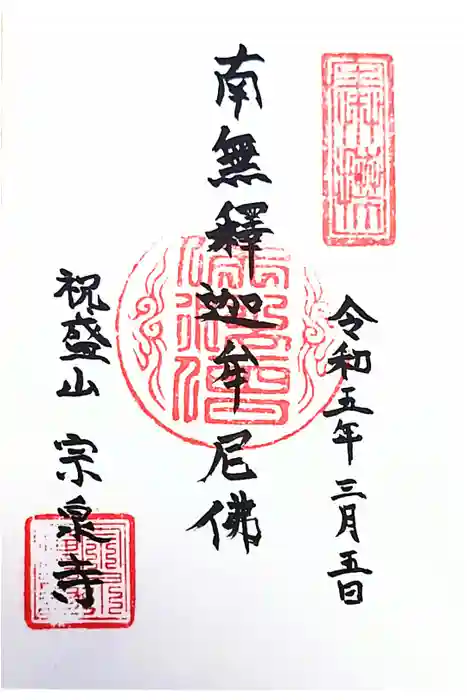 令和五年三月五日
南無釋迦牟尼佛
祝盛山 宗泉寺